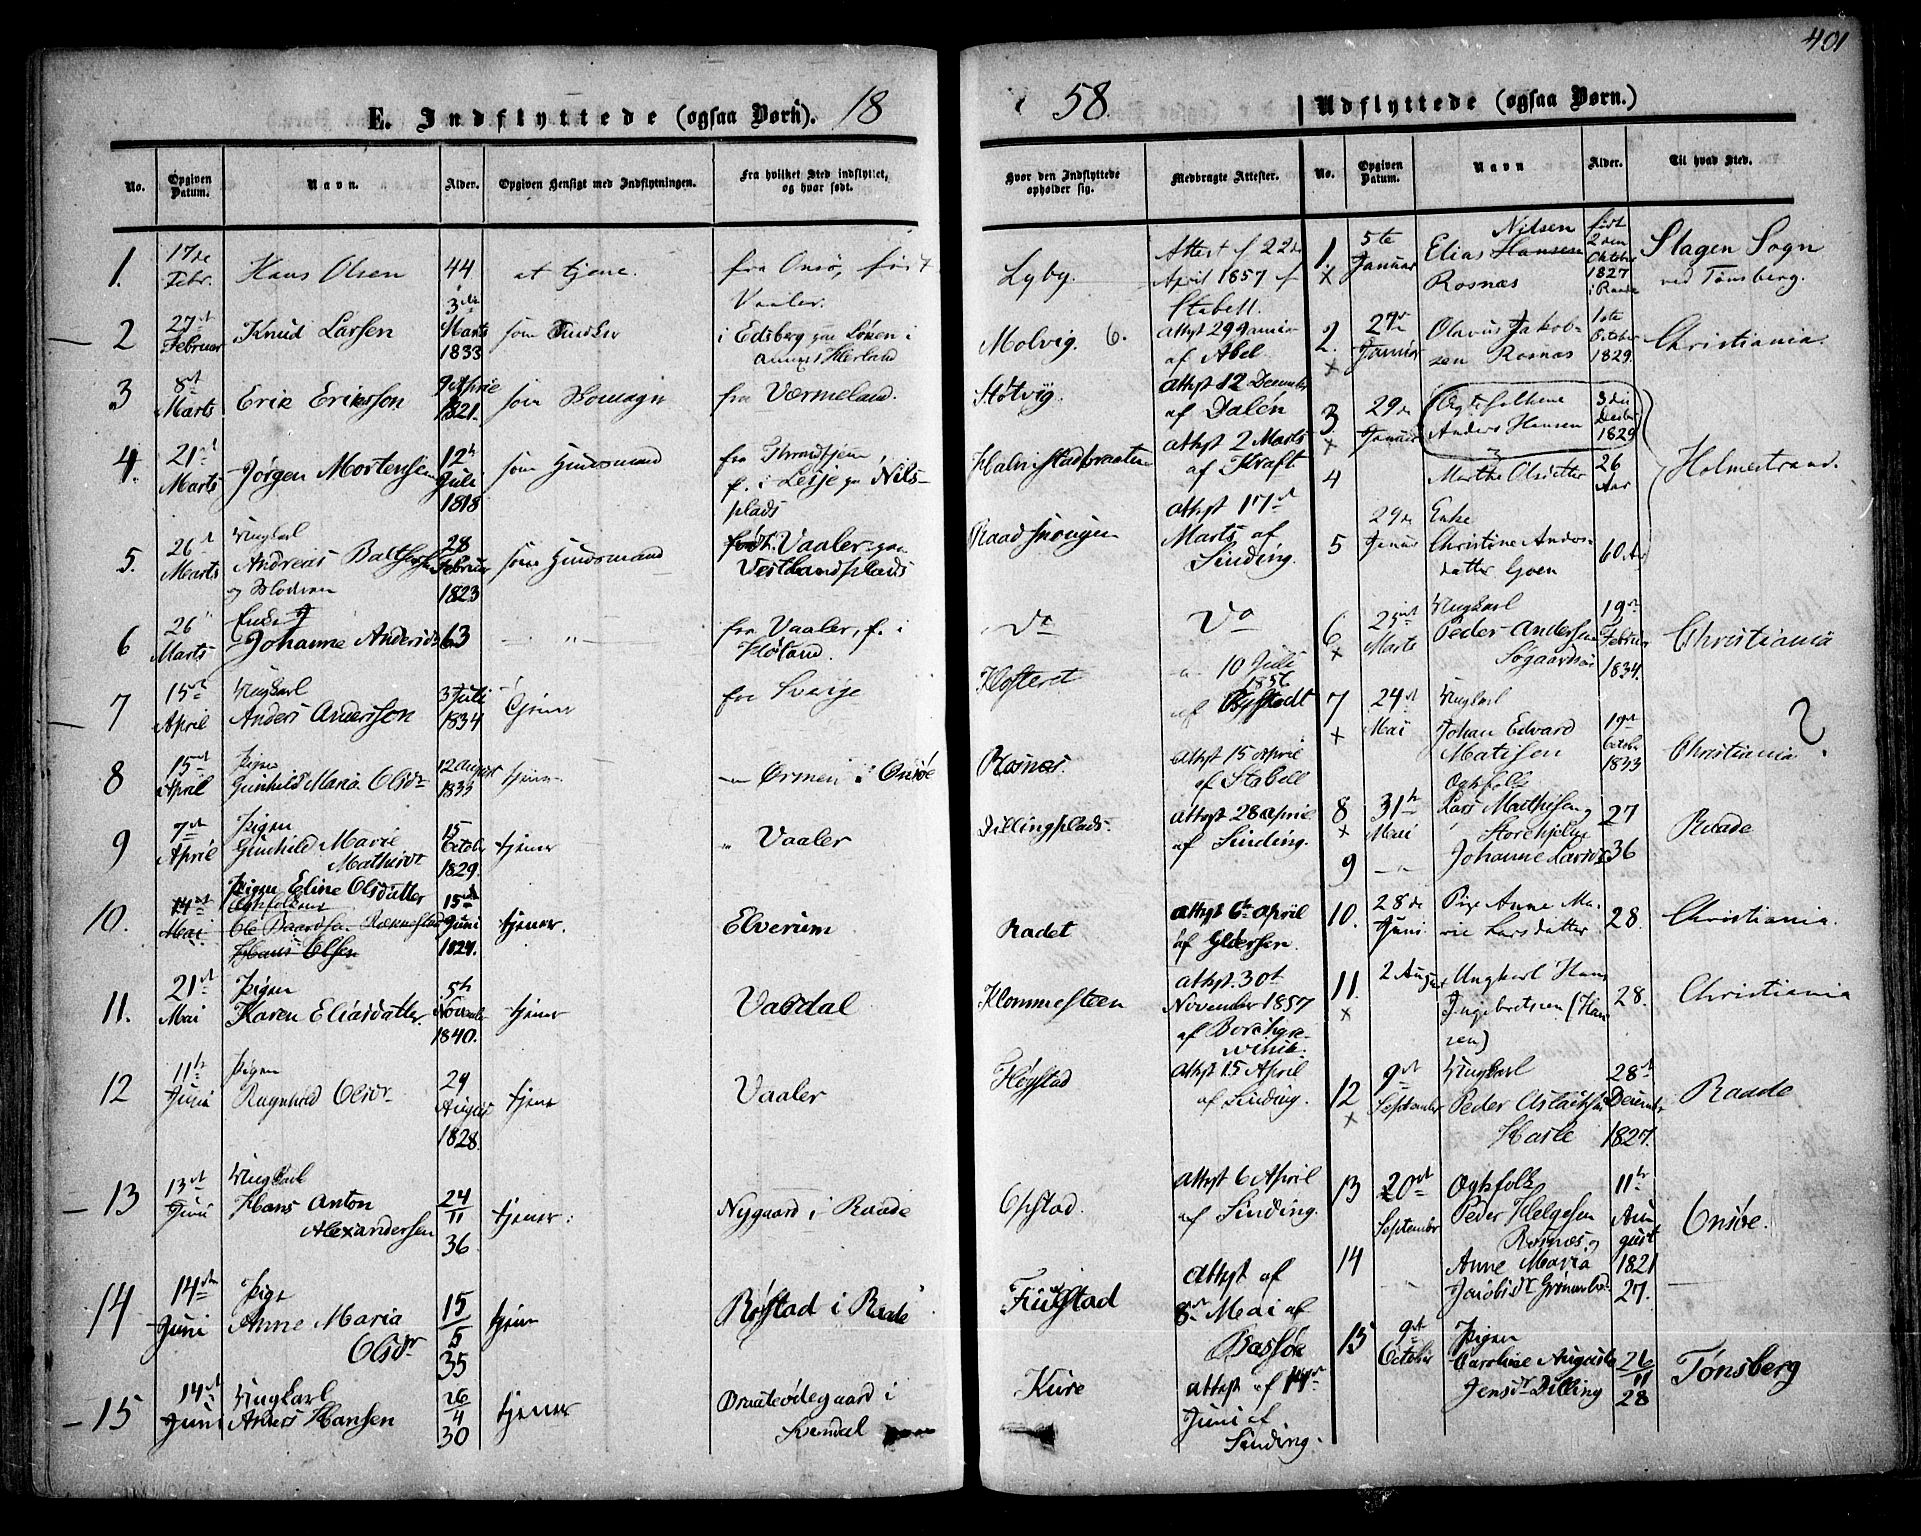 401
E. Indflyttede (ogsaa Børn). 18
58. Udflyttede (ogsaa Børn.)
No. Opgiven Datum. Navn. Alder. Opgiven Hensigt med Indflytningen. Fra hvilket Sted indflyttet, og hvor født. Hvor den Indflyttede opholder sig. Medbragte Attester.
1. 17de Febr. Hans Olsen 44 at tjene. fra Onsø, født Vaaler. Lyby. Attest f 22de April 1857 f Stabell.
2 27de Februar Knud Larsen 3die Marts 1833 som i Edsberg Annex Molvig. 6. af Abel.
3 8de Marts Erik Eriksson 9 April 1821. som fra Værmeland. Støtvig. attest 12 December af Dalén
4. 21de Marts Jørgen Mortensen 12te Juli 1818 som Huusmand fra f. i Lesje Nilsplads attest 2 Marts af Kraft
5. 26de Marts Ungkarl Andreas Balthersen 28 Februar 1823 som Huusmand født Vaaler Vestlandsplads attest 17de Marts af Sinding.
6 26 Marts Enke Johanne Andersdr 63 — " — fra Vaaler, f. i Høland. Do Do
7 15de April Ungkarl Anders Andersson 3 Juli 1834 Tjener fra Sverige Klosteret 10 Juli 1856 af
8 15de April Pigen Gunhild Maria Olsdr 12 August 1833 tjene Ørmen i Onsøe Rosnæs. attest 15 April af Stabell
9 7de April Pigen Gunhild Marie Mathisdr 15 October 1829. tjener " Vaaler Dillingplads. attest 28 April af Sinding.
10. 14de Mai Pigen Eline Olsdatter Hans Olsen 15de Juni 1824. tjener. Elverum Radet attest 6te April af
11. 21de Mai Pigen Karen Eliasdatter 5te November 1840. tjener Vardal Klommesteen attest 30t November 1857 af
12 11te Juni Pigen Ragnhild Olsdr 24 August 1828. tjene Vaaler Høgstad attest 15 April af Sinding.
13 13de Juni Ungkarl Hans Anton Alexandersen 24/11 36 tjener. Nygaard i Raade Opstad. attest 6 April af Sinding
14 14de Juni Pige Anne Maria Olsdr 15/5 35 tjene Røstad i Raade attest af 8de Mai af Bassøe
15 14de Juni Ungkarl Anders Hansen 26/4 30 tjener Braateødegaard i Svendal Kure attest af 14de Juni af Sinding.
No. Opgiven Datum. Navn Alder. Til hvad Sted.
1. x 5te Januar Elias Hansen Nilsen Rosnæs født 2den Oktober 1827 i Raade Slagen Sogn ved Tønsberg.
2. x 27de Januar Olavus Jakobsen Rosnæs 1ste October 1829. Christiania.
3. x 29de Januar Ægtefolkene Anders Hansen 3die Decbr 1829
4 Marthe Olsdatter 26 Aar Holmestrand.
5 29de Januar Enke Christine Andersdatter Goen 60 Aar
6 x 25de Marts Ungkarl Peder Andersen 19de Februar 1834. Christiania
7 x 24de Mai Ungkarl Johan Edvard Matisen 19de October 1833 Christiania. ?
8 x 31te Mai Lars Mathisen 27 Raade
9 — " — Johanne Larsdr 36
10. 28de Juni Pige Anne Marie Larsdatter 28. Christiania.
11. x 2 August Ungkarl Hans Ingebretsen (Hansen) 28. Christiania
12 x 9de September Ungkarl Peder Aslaksen Karle 28de December 1827. Raade
13 20de September Peder Helgesen Rosnæs og 11te August 1821 Onsøe.
14 Anne Maria Jacobsdr 27.
15 9de October Pigen Caroline Augusta Jensdr Dilling 26/11 28 Tønsberg